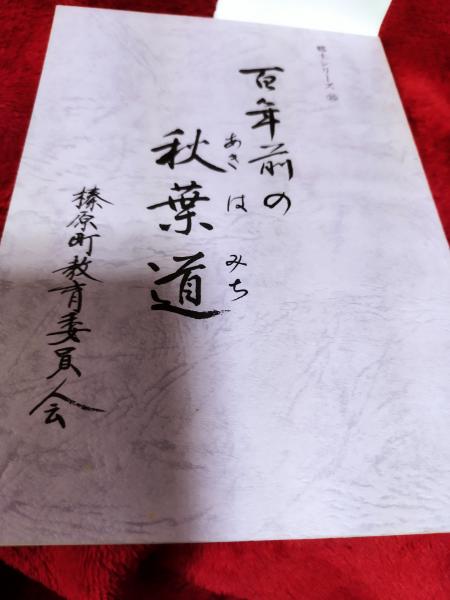 郷土シリーズ
百年前の
秋葉道
あきはみち
榛原町教育委員会